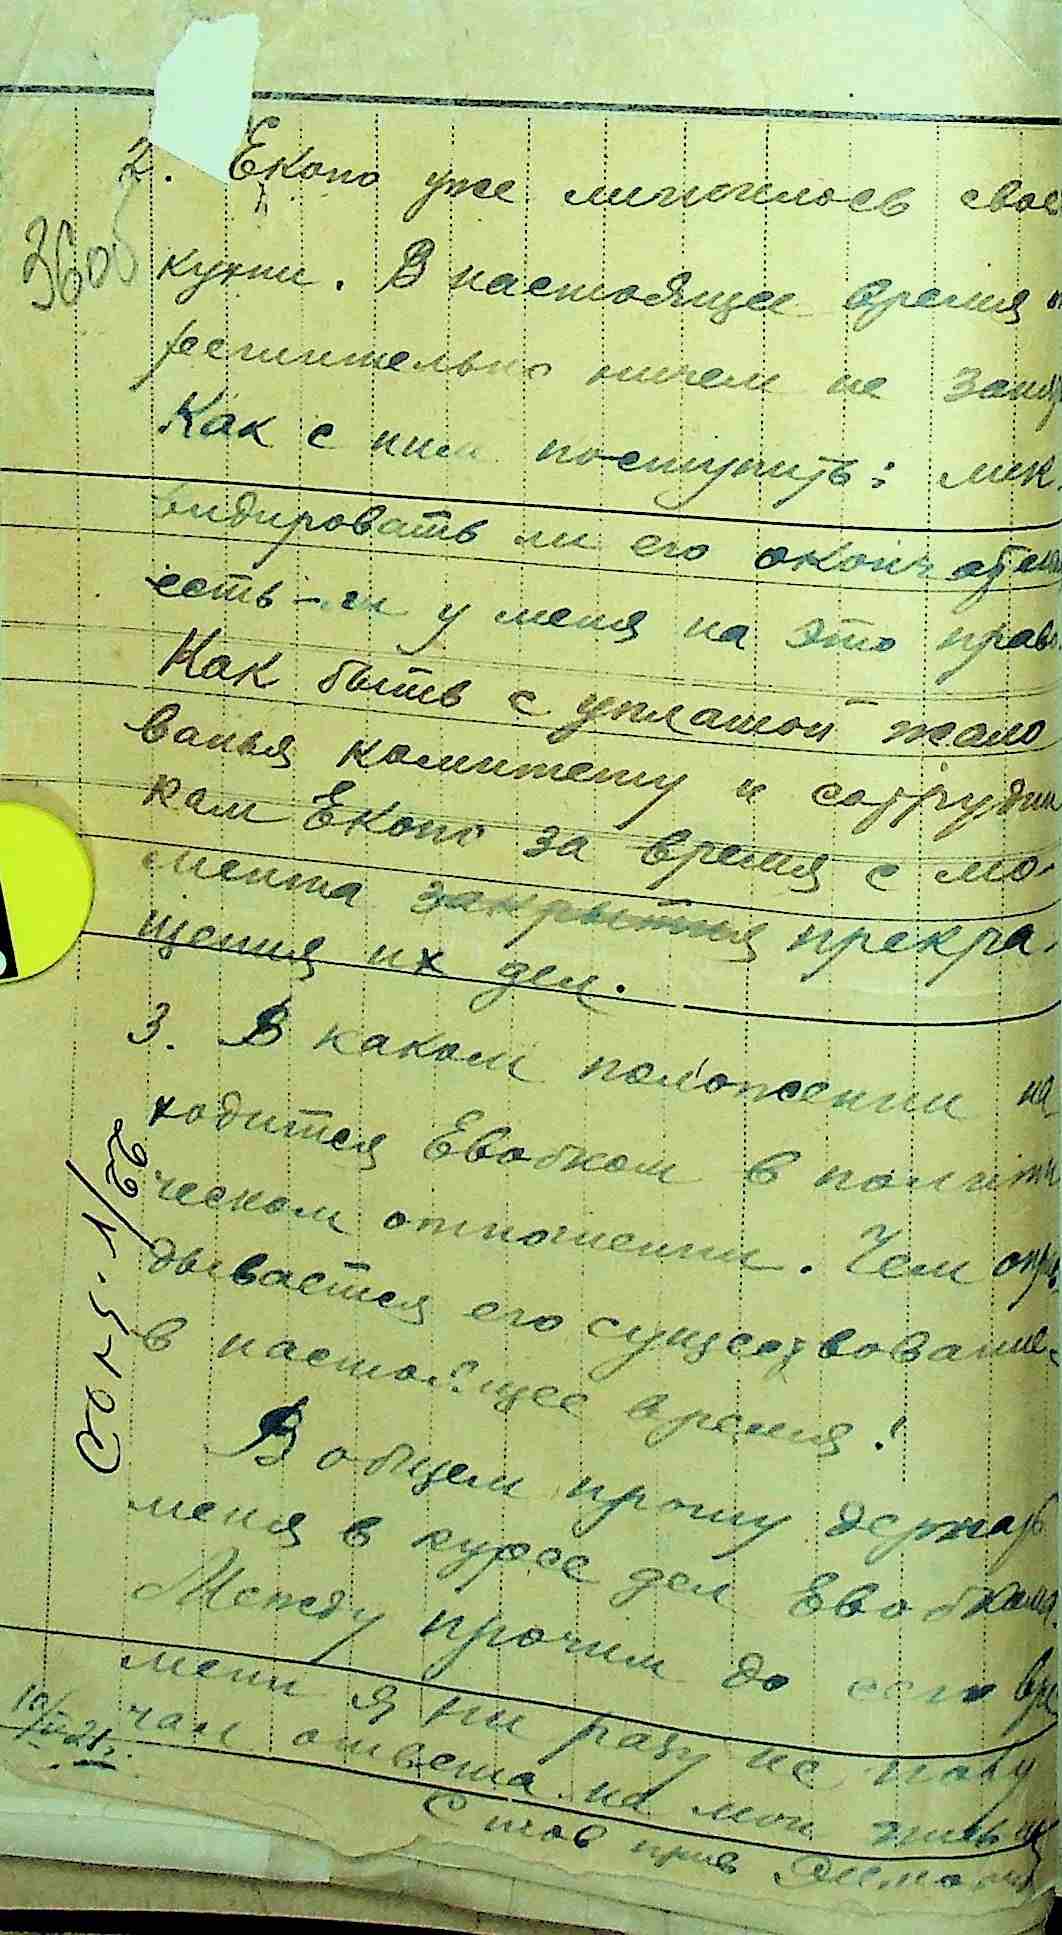 2. Екопо уже лишилось свое
36об
кухни. В настоящее время
решительно ничем не заним
Как с ним поступить: лик-
видировать ли его окончател
есть-ли у меня на это прав
Как быть с уплатой жало
ванья комитету и сотрудни
кам Екопо за время с мо-
мента закрытия прекра-
щения их дел.
3. В каком положении на
ходится Евобком в полити
ческом отношении. Чем оправ
дывается его существование
в настоящее время?
В общем прошу держать
меня в курсе дел Евобкома.
Между прочим до сего вре
мени я ни разу не полу
чал ответа на мои письма
С тов прив
10/ 21г.